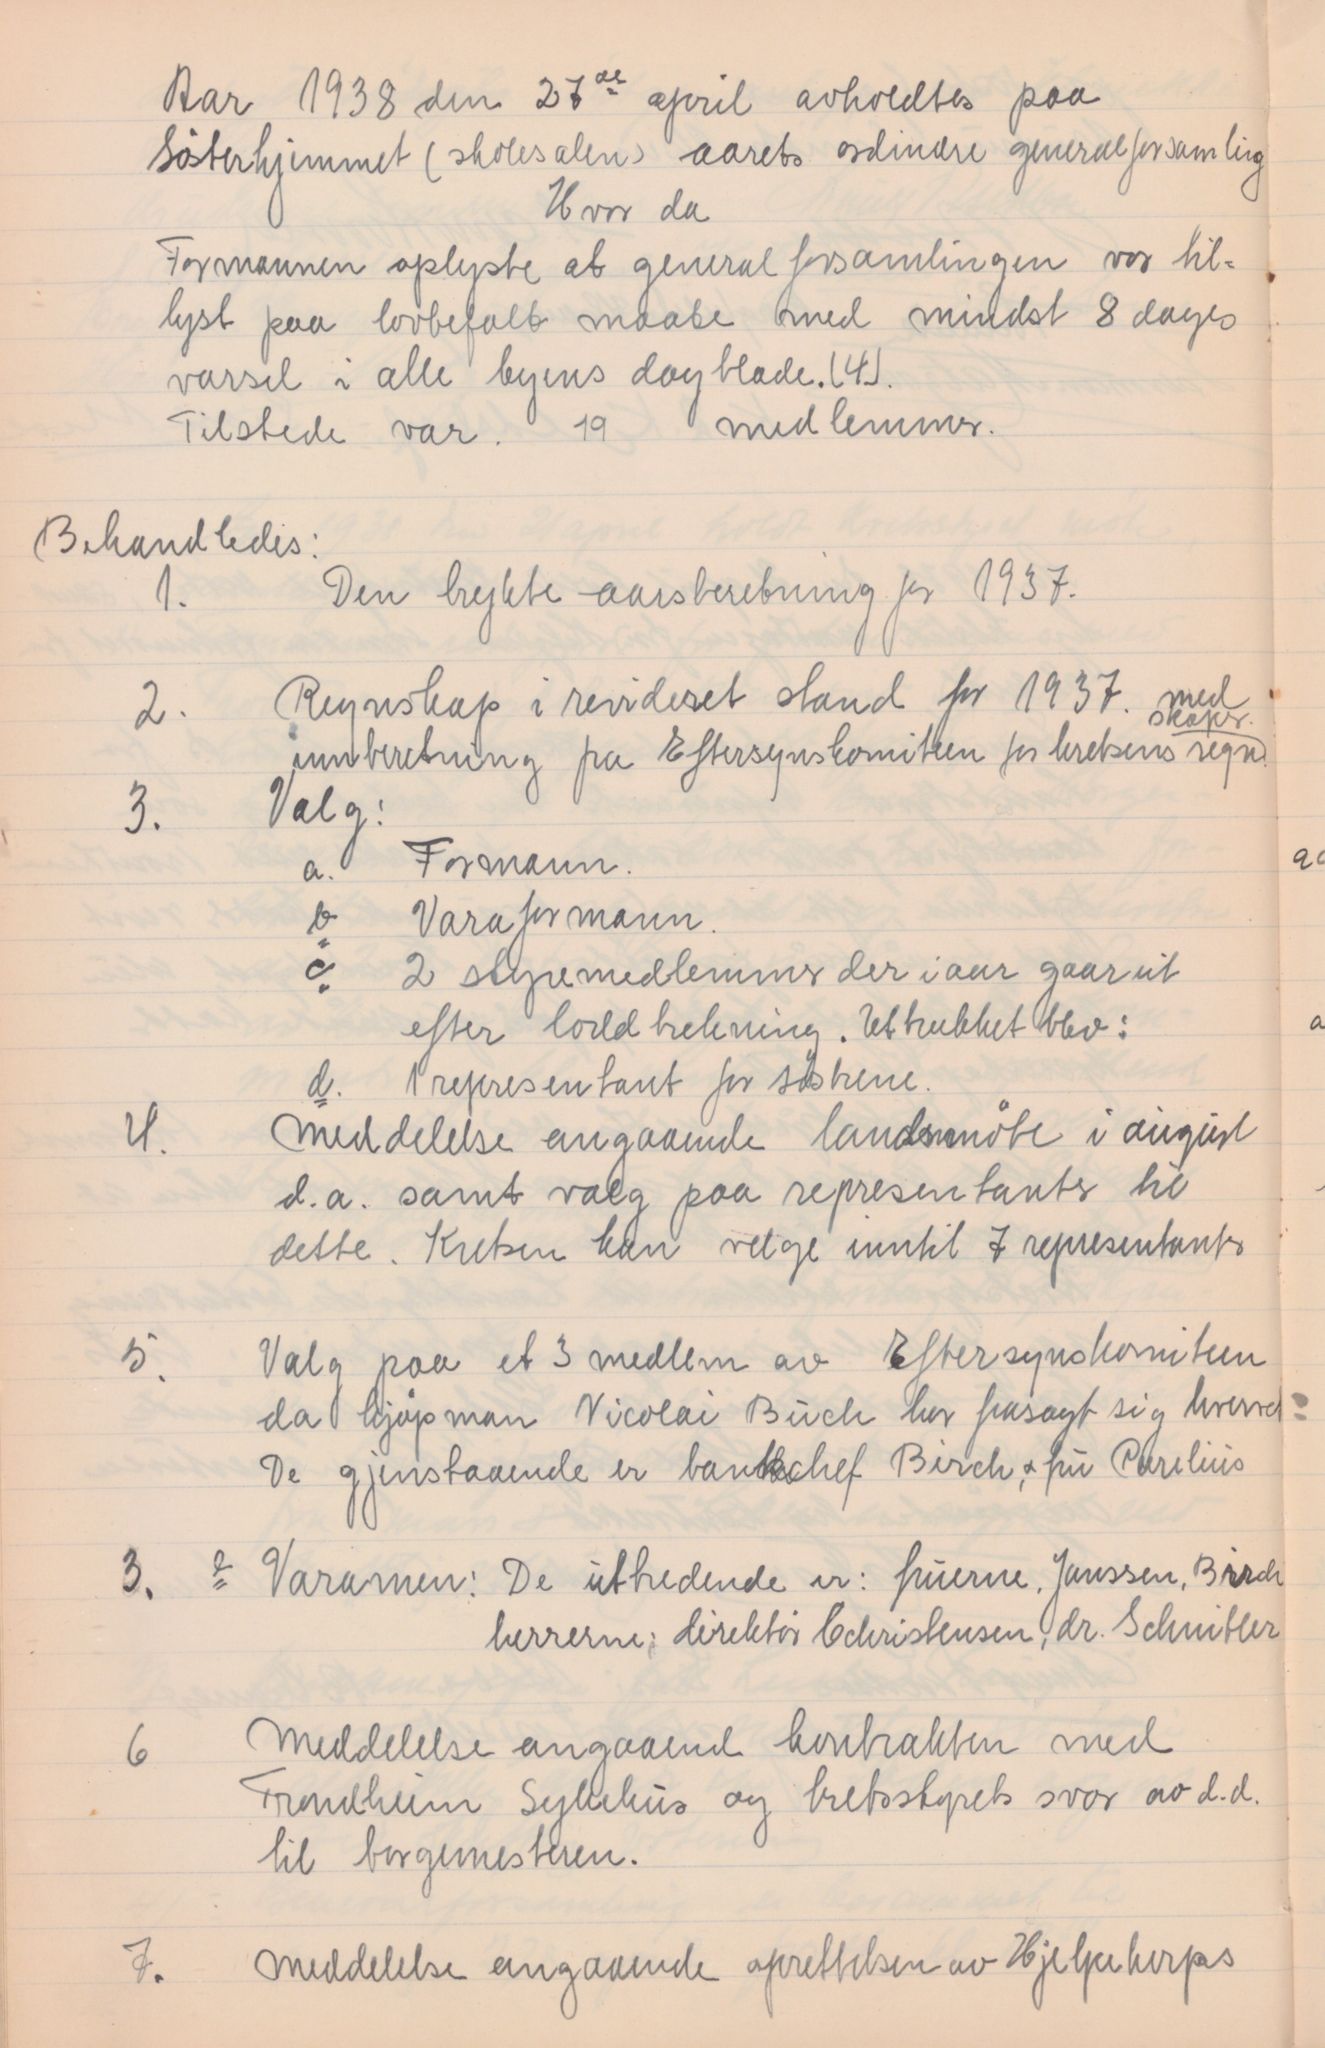 Aar 1938 den 27de april avholdtes paa
Søsterhjemmet (skolesalen) aarets ordinære generalforsamling
Hvor da
Formannen oplyste at generalforsamlingen var til-
lyst paa lovbefalt maate med mindst 8 dages
varsel i alle byens dagblade. (4).
Tilstede var. 19 medlemmer.
Behandledes:
1. Den trykte aarsberetning for 1937.
2. Regnskap i revideret stand for 1937. med
innberetning fra Eftersynskomiteen for kretsens regnskaper.
3. Valg:
a. Formann.
b Varaformann.
c. 2 styremedlemmer der i aar gaar ut
efter loddtrekning. Uttrukket blev:
d. 1 representant for søstrene.
4. Meddelelse angaaende landsmøte i august
d.a. samt valg paa representanter til
dette. Kretsen kan velge inntil 7 representanter
5. Valg paa et 3 medlem av Eftersynskomiteen
da kjøpman Nicolai Buch har frasagt sig hvervet
De gjenstaaende er bankchef Birch, & fru Parelius
3. e Varamen: De uttredende er: fruerne, Janssen, Birch
herrerne; direktør Christensen, dr. Schnitler
6 Meddelelse angaaend kontrakten med
Trondheim Sykehus og kretsstyrets svar av d.d.
til borgemesteren.
7. Meddelelse angaaende oprettelsen av Hjelpekorps